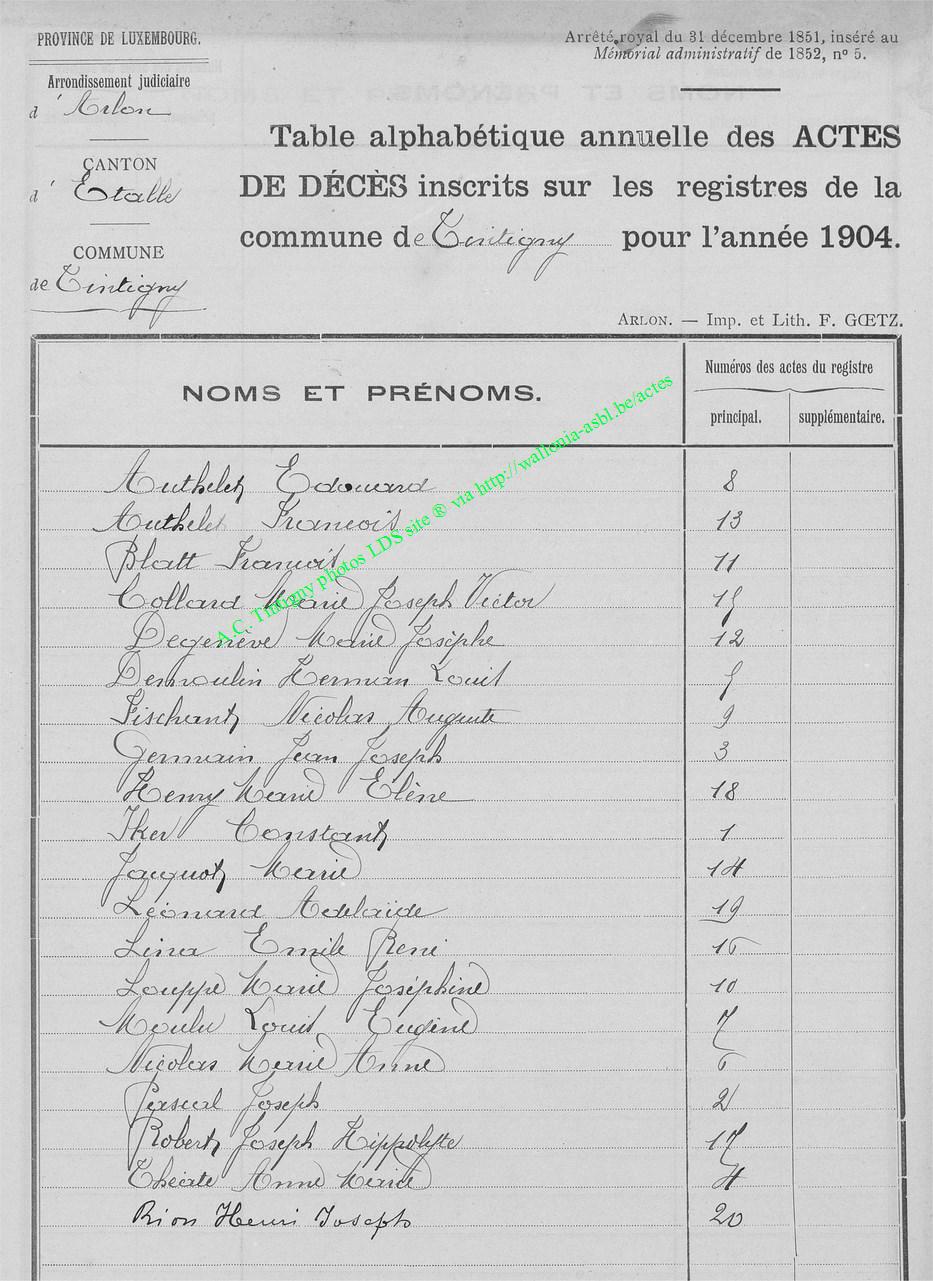 PROVINCE DE LUXEMBOURG.
Arrondissement judiciaire
d'Arlon
CANTON
d'Etalle
COMMUNE
de Tintigny
Arrêté royal du 31 décembre 1851, inséré au
Mémorial administratif de 1852, nº 5.
Table alphabétique annuelle des ACTES
DE DÉCÈS inscrits sur les registres de la
commune de Tintigny pour l'année 1904.
ARLON. — Imp. et Lith. F. GŒTZ.
NOMS ET PRÉNOMS.
Numéros des actes du registre
principal. supplémentaire.
A.C. Tintigny photos LDS site ® via http://wallonia-asbl.be/actes
Authelet Edouard 8
Authelet Francois 13
Blatt Francois 11
Collard Marie Joseph Victor 15
Degenève Marie Josèphe 12
Demoulin Herman Louis 5
Nicolas Auguste 9
Germain Jean Joseph 3
Henry Marie Elène 18
Iker Constant 1
Jacquot Marie 14
Léonard Adelaïde 19
Emile René 16
Louppe Marie Joséphine 10
Louis Eugène 7
Nicolas Marie Anne 6
Pascal Joseph 2
Robert Joseph Hippolyte 17
Anne Marie 4
Rion Henri Joseph 20